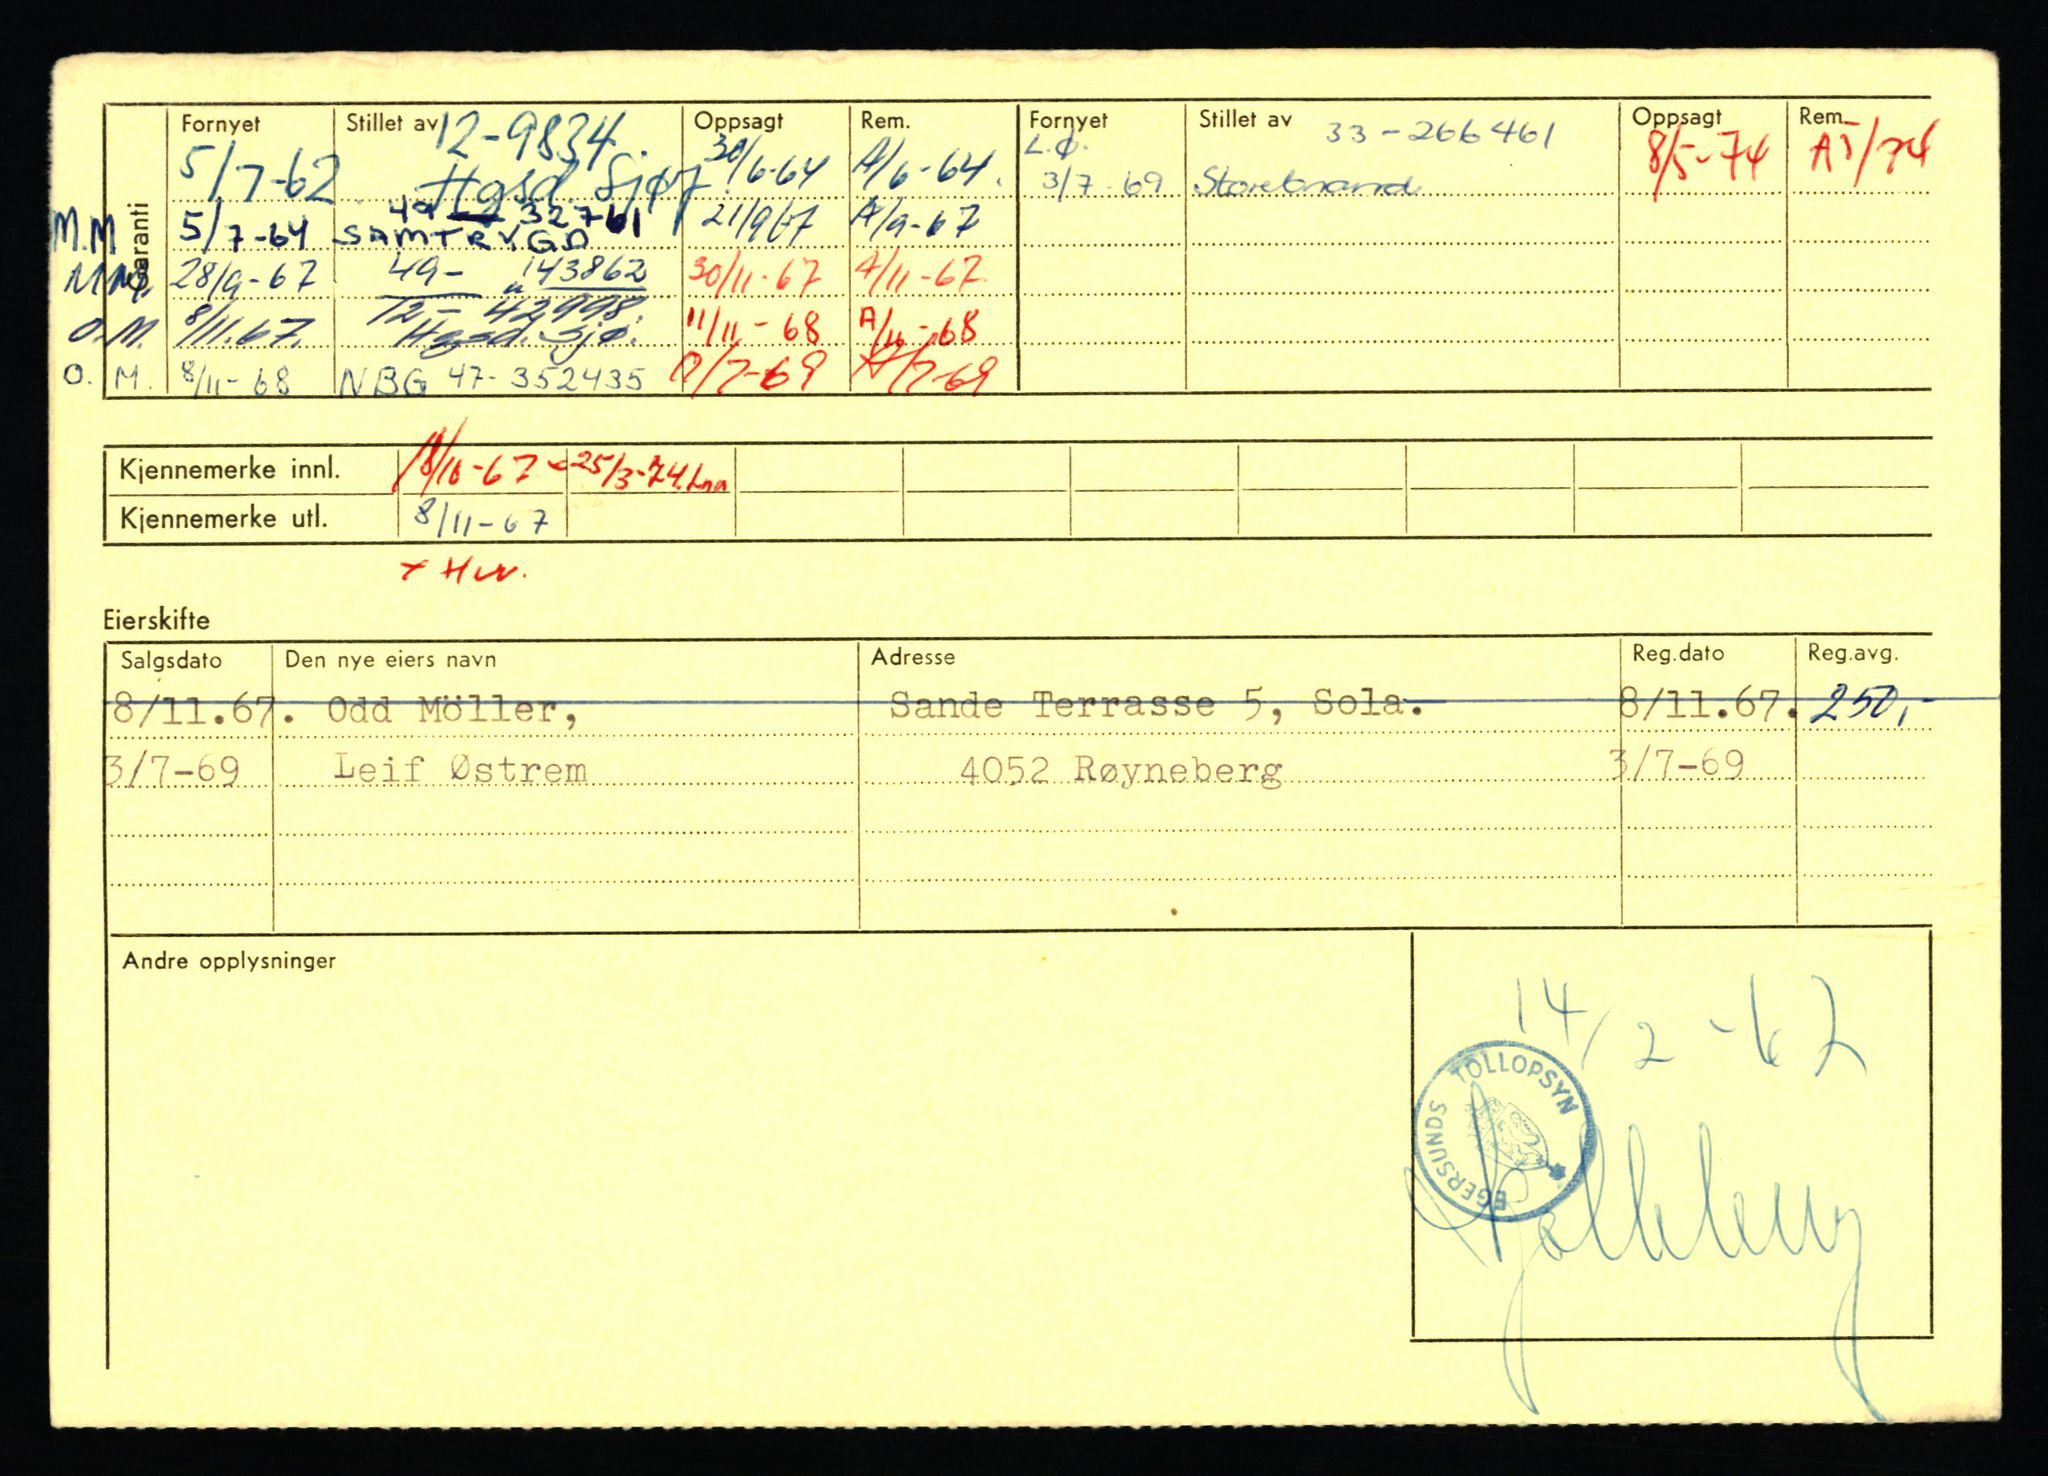 Garanti
Fornyet Stillet av Oppsagt Rem. Fornyet Stillet av Oppsagt Rem.
12-9834. L.Ø. 33-266461
5/7-62 Hgsd. Sjøf. 30/6-64 A/6-64. 3/7-69 Storebrand 8/5-74 A5/74
49-32761
M.M 5/7-64 SAMTRYGD 21/9/67 A/9-67
M.M. 28/9-67 49- " 143862 30/11-67 A/11-67.
12-42998.
O.M. 8/11.67. Hgsd. Sjø. 11/11-68 A/11-68
O.M. 8/11-68 NBG 47-352435 /7-69 A/7-69
Kjennemerke innl. 18/10-67 25/3-74.
Kjennemerke utl. 8/11-67
Eierskifte
Salgsdato Den nye eiers navn Adresse Reg.dato Reg.avg.
8/11.67. Odd Möller, Sande Terrasse 5, Sola. 8/11.67. 250,-
3/7-69 Leif Østrem 4052 Røyneberg 3/7-69
Andre opplysninger
14/2-67
EGERSUNDS TOLLOPSYN